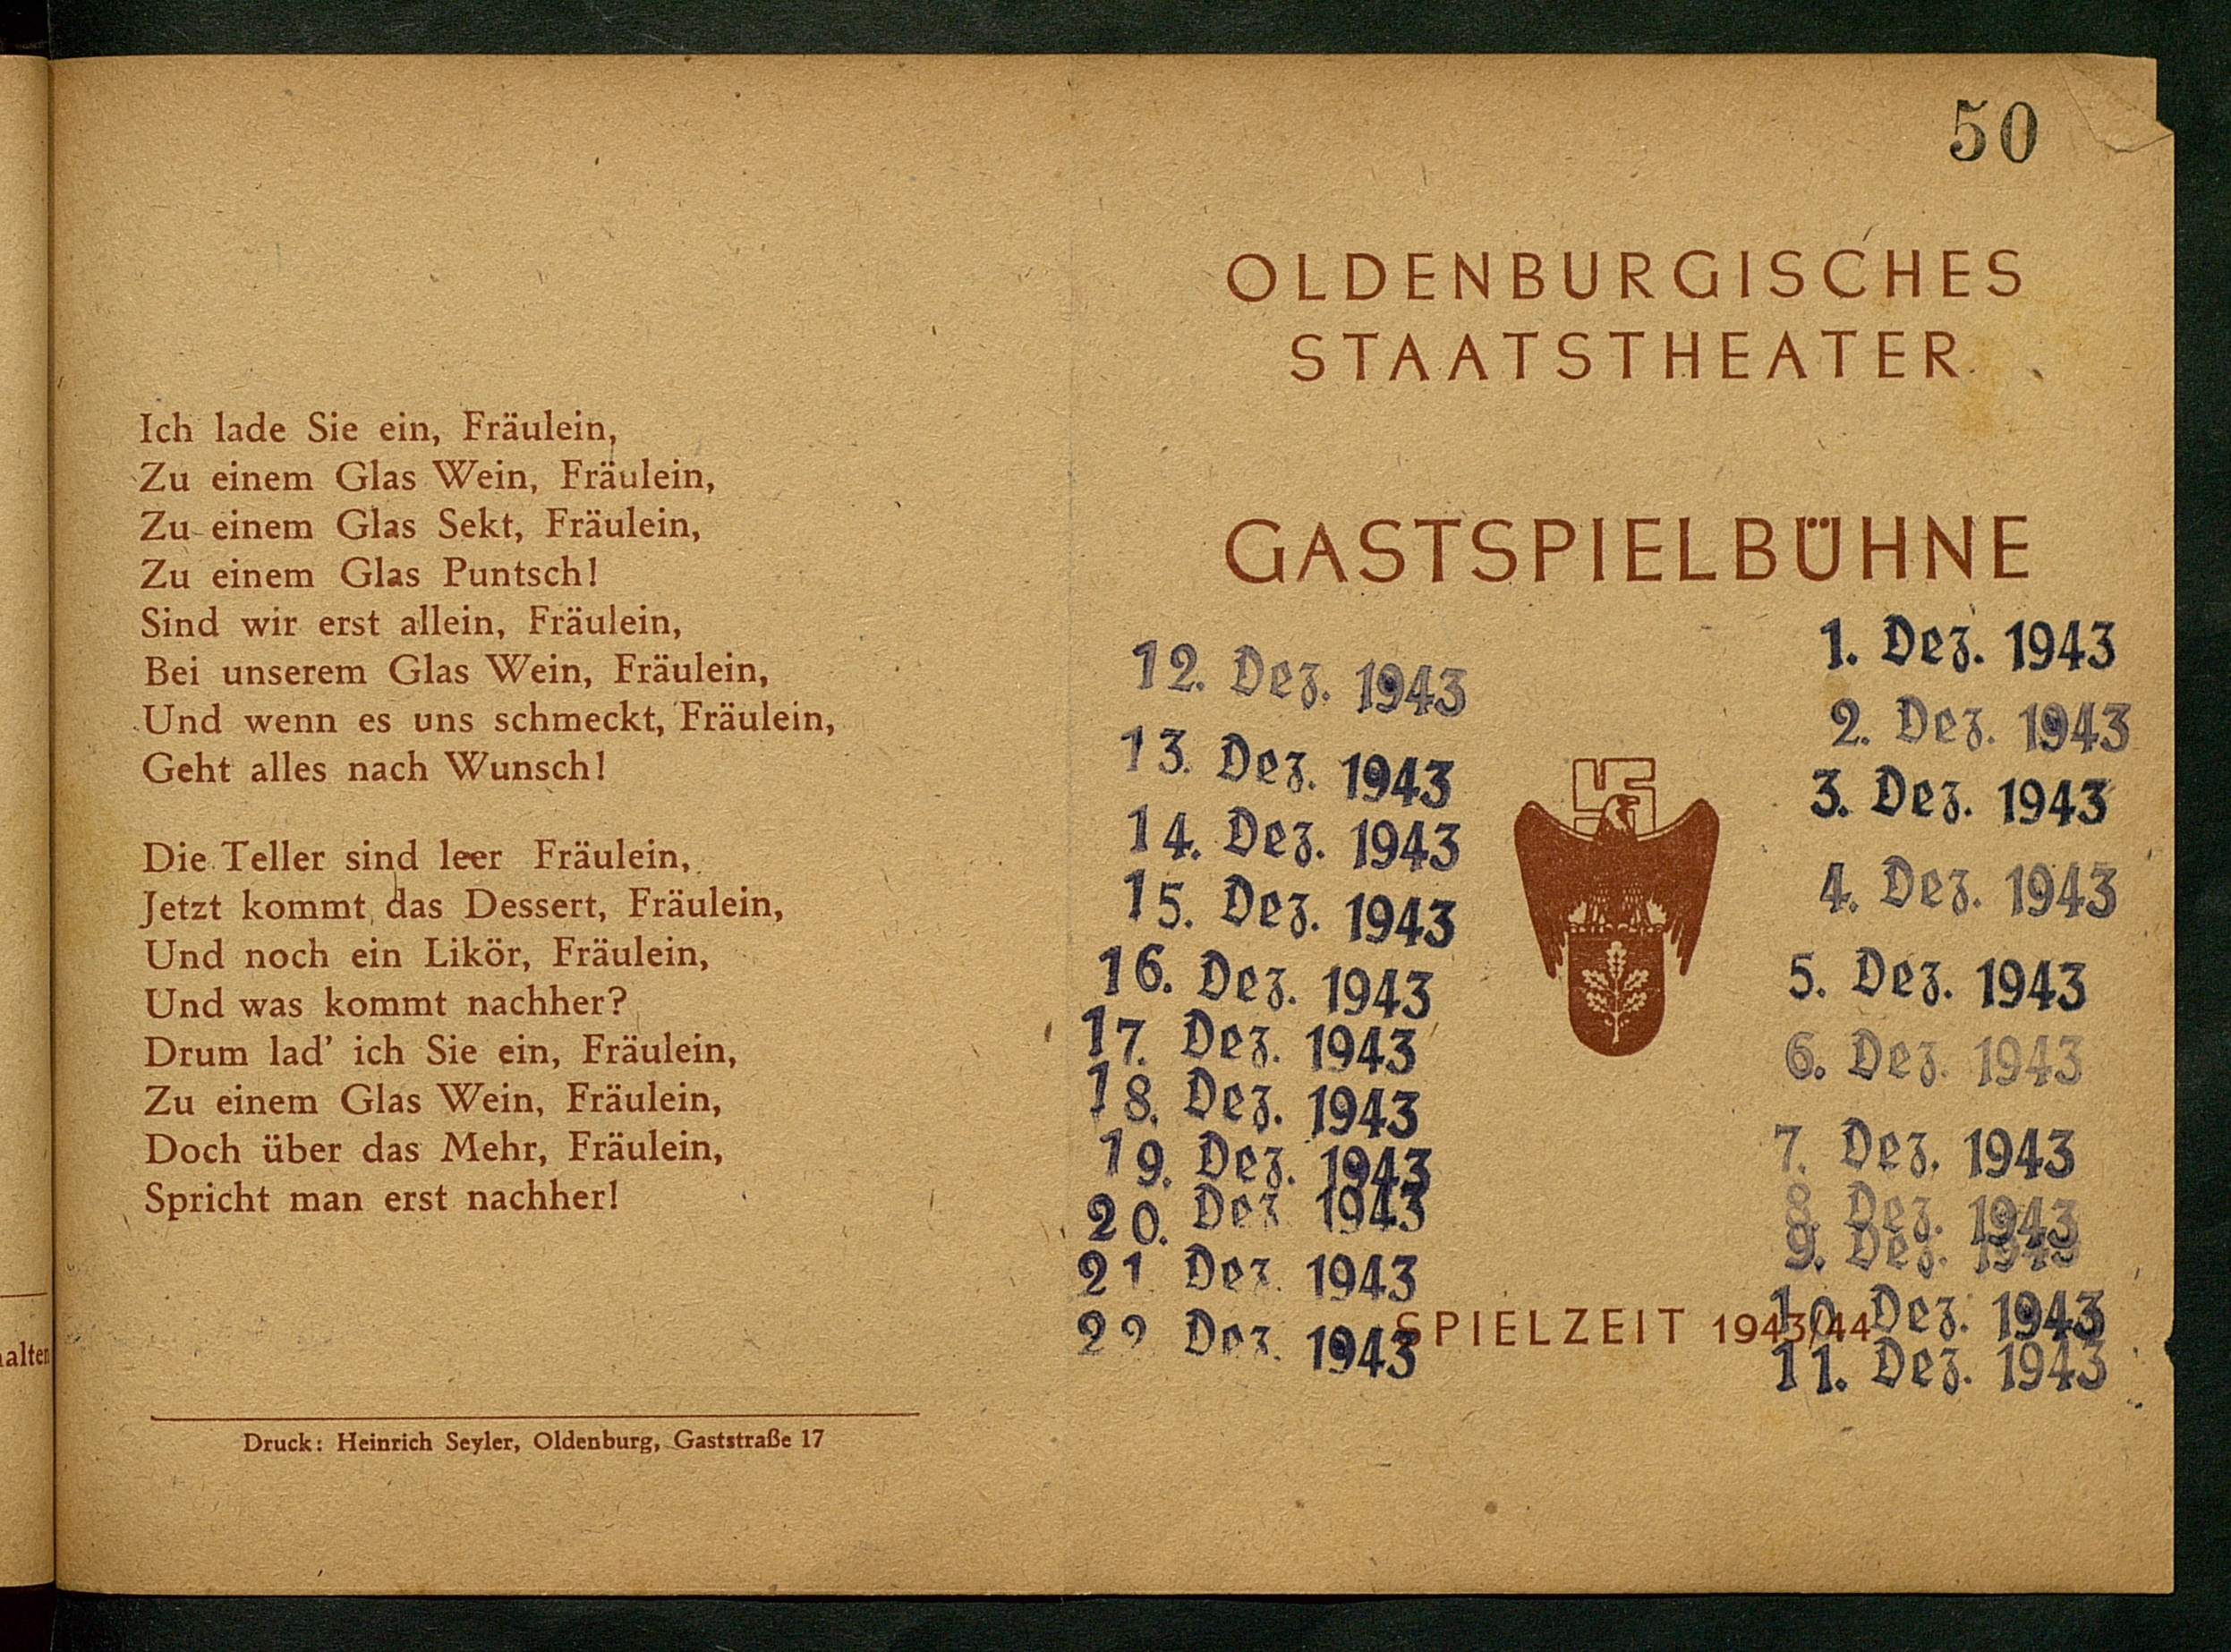 Ich lade Sie ein, Fräulein,
Zu einem Glas Wein, Fräulein,
Zu einem Glas Sekt, Fräulein,
Zu einem Glas Puntsch!
Sind wir erst allein, Fräulein,
Bei unserem Glas Wein, Fräulein,
Und wenn es uns schmeckt, Fräulein,
Geht alles nach Wunsch!
Die Teller sind leer Fräulein,
Jetzt kommt das Dessert, Fräulein,
Und noch ein Likör, Fräulein,
Und was kommt nachher?
Drum lad’ ich Sie ein, Fräulein,
Zu einem Glas Wein, Fräulein,
Doch über das Mehr, Fräulein,
Spricht man erst nachher!
Druck: Heinrich Seyler, Oldenburg, Gaststraße 17
50
OLDENBURGISCHES
STAATSTHEATER
GASTSPIELBÜHNE
1. Dez. 1943
2. Dez. 1943
3. Dez. 1943
4. Dez. 1943
5. Dez. 1943
6. Dez. 1943
7. Dez. 1943
8. Dez. 1943
9. Dez. 1943
10. Dez. 1943
11. Dez. 1943
12. Dez. 1943
13. Dez. 1943
14. Dez. 1943
15. Dez. 1943
16. Dez. 1943
17. Dez. 1943
18. Dez. 1943
19. Dez. 1943
20. Dez 1943
21 Dez. 1943
22 Dez. 1943
SPIELZEIT 1943/44